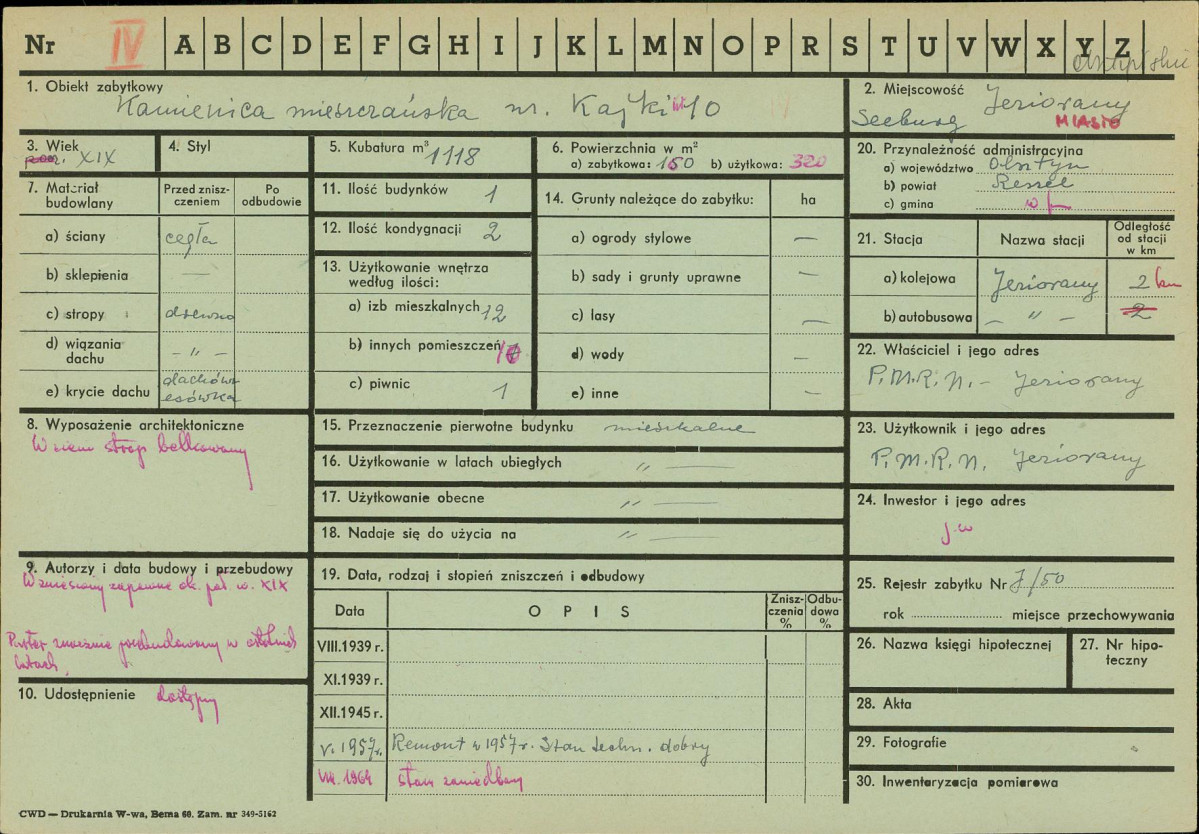 Nr IV A B C D E F G H I J K L M N O P R S T U V W X Y Z
1. Obiekt zabytkowy
Kamienica mieszczańska nr. Kajki 10
2. Miejscowość Jeziorany
Seeburg MIASTO
3. Wiek
XIX
4. Styl
5. Kubatura m³ 1118
6. Powierzchnia w m²
a) zabytkowa: 150 b) użytkowa: 320
20. Przynależność administracyjna
a) województwo Olsztyn
b) powiat Reszel
c) gmina
7. Materiał budowlany
Przed zniszczeniem
Po odbudowie
a) ściany cegła
b) sklepienia —
c) stropy drewno
d) wiązania dachu — „ —
e) krycie dachu dachówk. esówka
11. Ilość budynków 1
12. Ilość kondygnacji 2
13. Użytkowanie wnętrza według ilości:
a) izb mieszkalnych 12
b) innych pomieszczeń
c) piwnic 1
14. Grunty należące do zabytku: ha
a) ogrody stylowe —
b) sady i grunty uprawne —
c) lasy —
d) wody —
e) inne —
21. Stacja
Nazwa stacji
Odległość od stacji w km
a) kolejowa Jeziorany 2 km
b) autobusowa — „ — 2
22. Właściciel i jego adres
P.M.R.N. – Jeziorany
8. Wyposażenie architektoniczne
W sieni strop belkowany
15. Przeznaczenie pierwotne budynku mieszkalne
16. Użytkowanie w latach ubiegłych „ —
17. Użytkowanie obecne „ —
18. Nadaje się do użycia na „ —
23. Użytkownik i jego adres
P.M.R.N. Jeziorany
24. Inwestor i jego adres
j.w
9. Autorzy i data budowy i przebudowy
Wzniesiony zapewne ok. poł. w. XIX
Parter znacznie przebudowany w ostatnich
latach.
10. Udostępnienie dostępny
19. Data, rodzaj i stopień zniszczeń i odbudowy
Data
O P I S
Zniszczenia %
Odbudowa %
VIII.1939 r.
XI.1939 r.
XII.1945 r.
r. 1957r. Remont w 1957r. Stan techn. dobry
VIII. 1964 stan zaniedbany
25. Rejestr zabytku Nr J/50
rok miejsce przechowywania
26. Nazwa księgi hipotecznej
27. Nr hipoteczny
28. Akta
29. Fotografie
30. Inwentaryzacja pomiarowa
CWD — Drukarnia W-wa, Bema 60. Zam. nr 349-5162